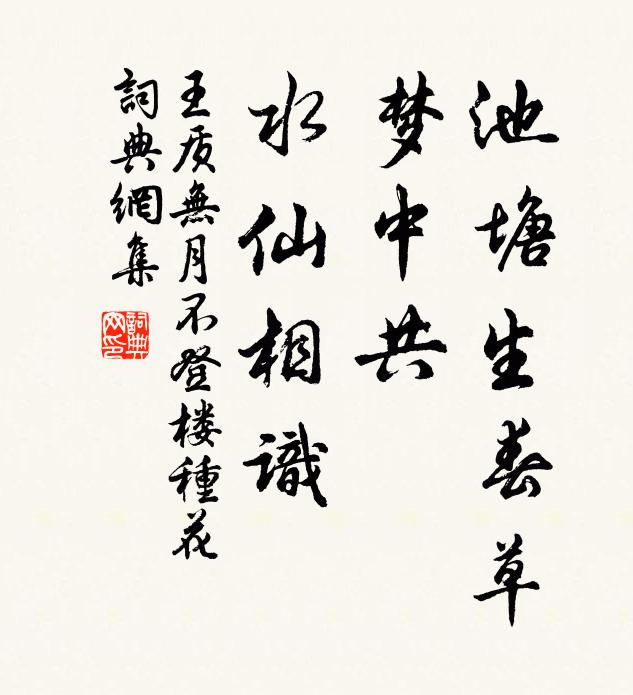 池塘生春草
梦中共
水仙相識
王质無月不登楼種花
詞典網集
詞典
网印